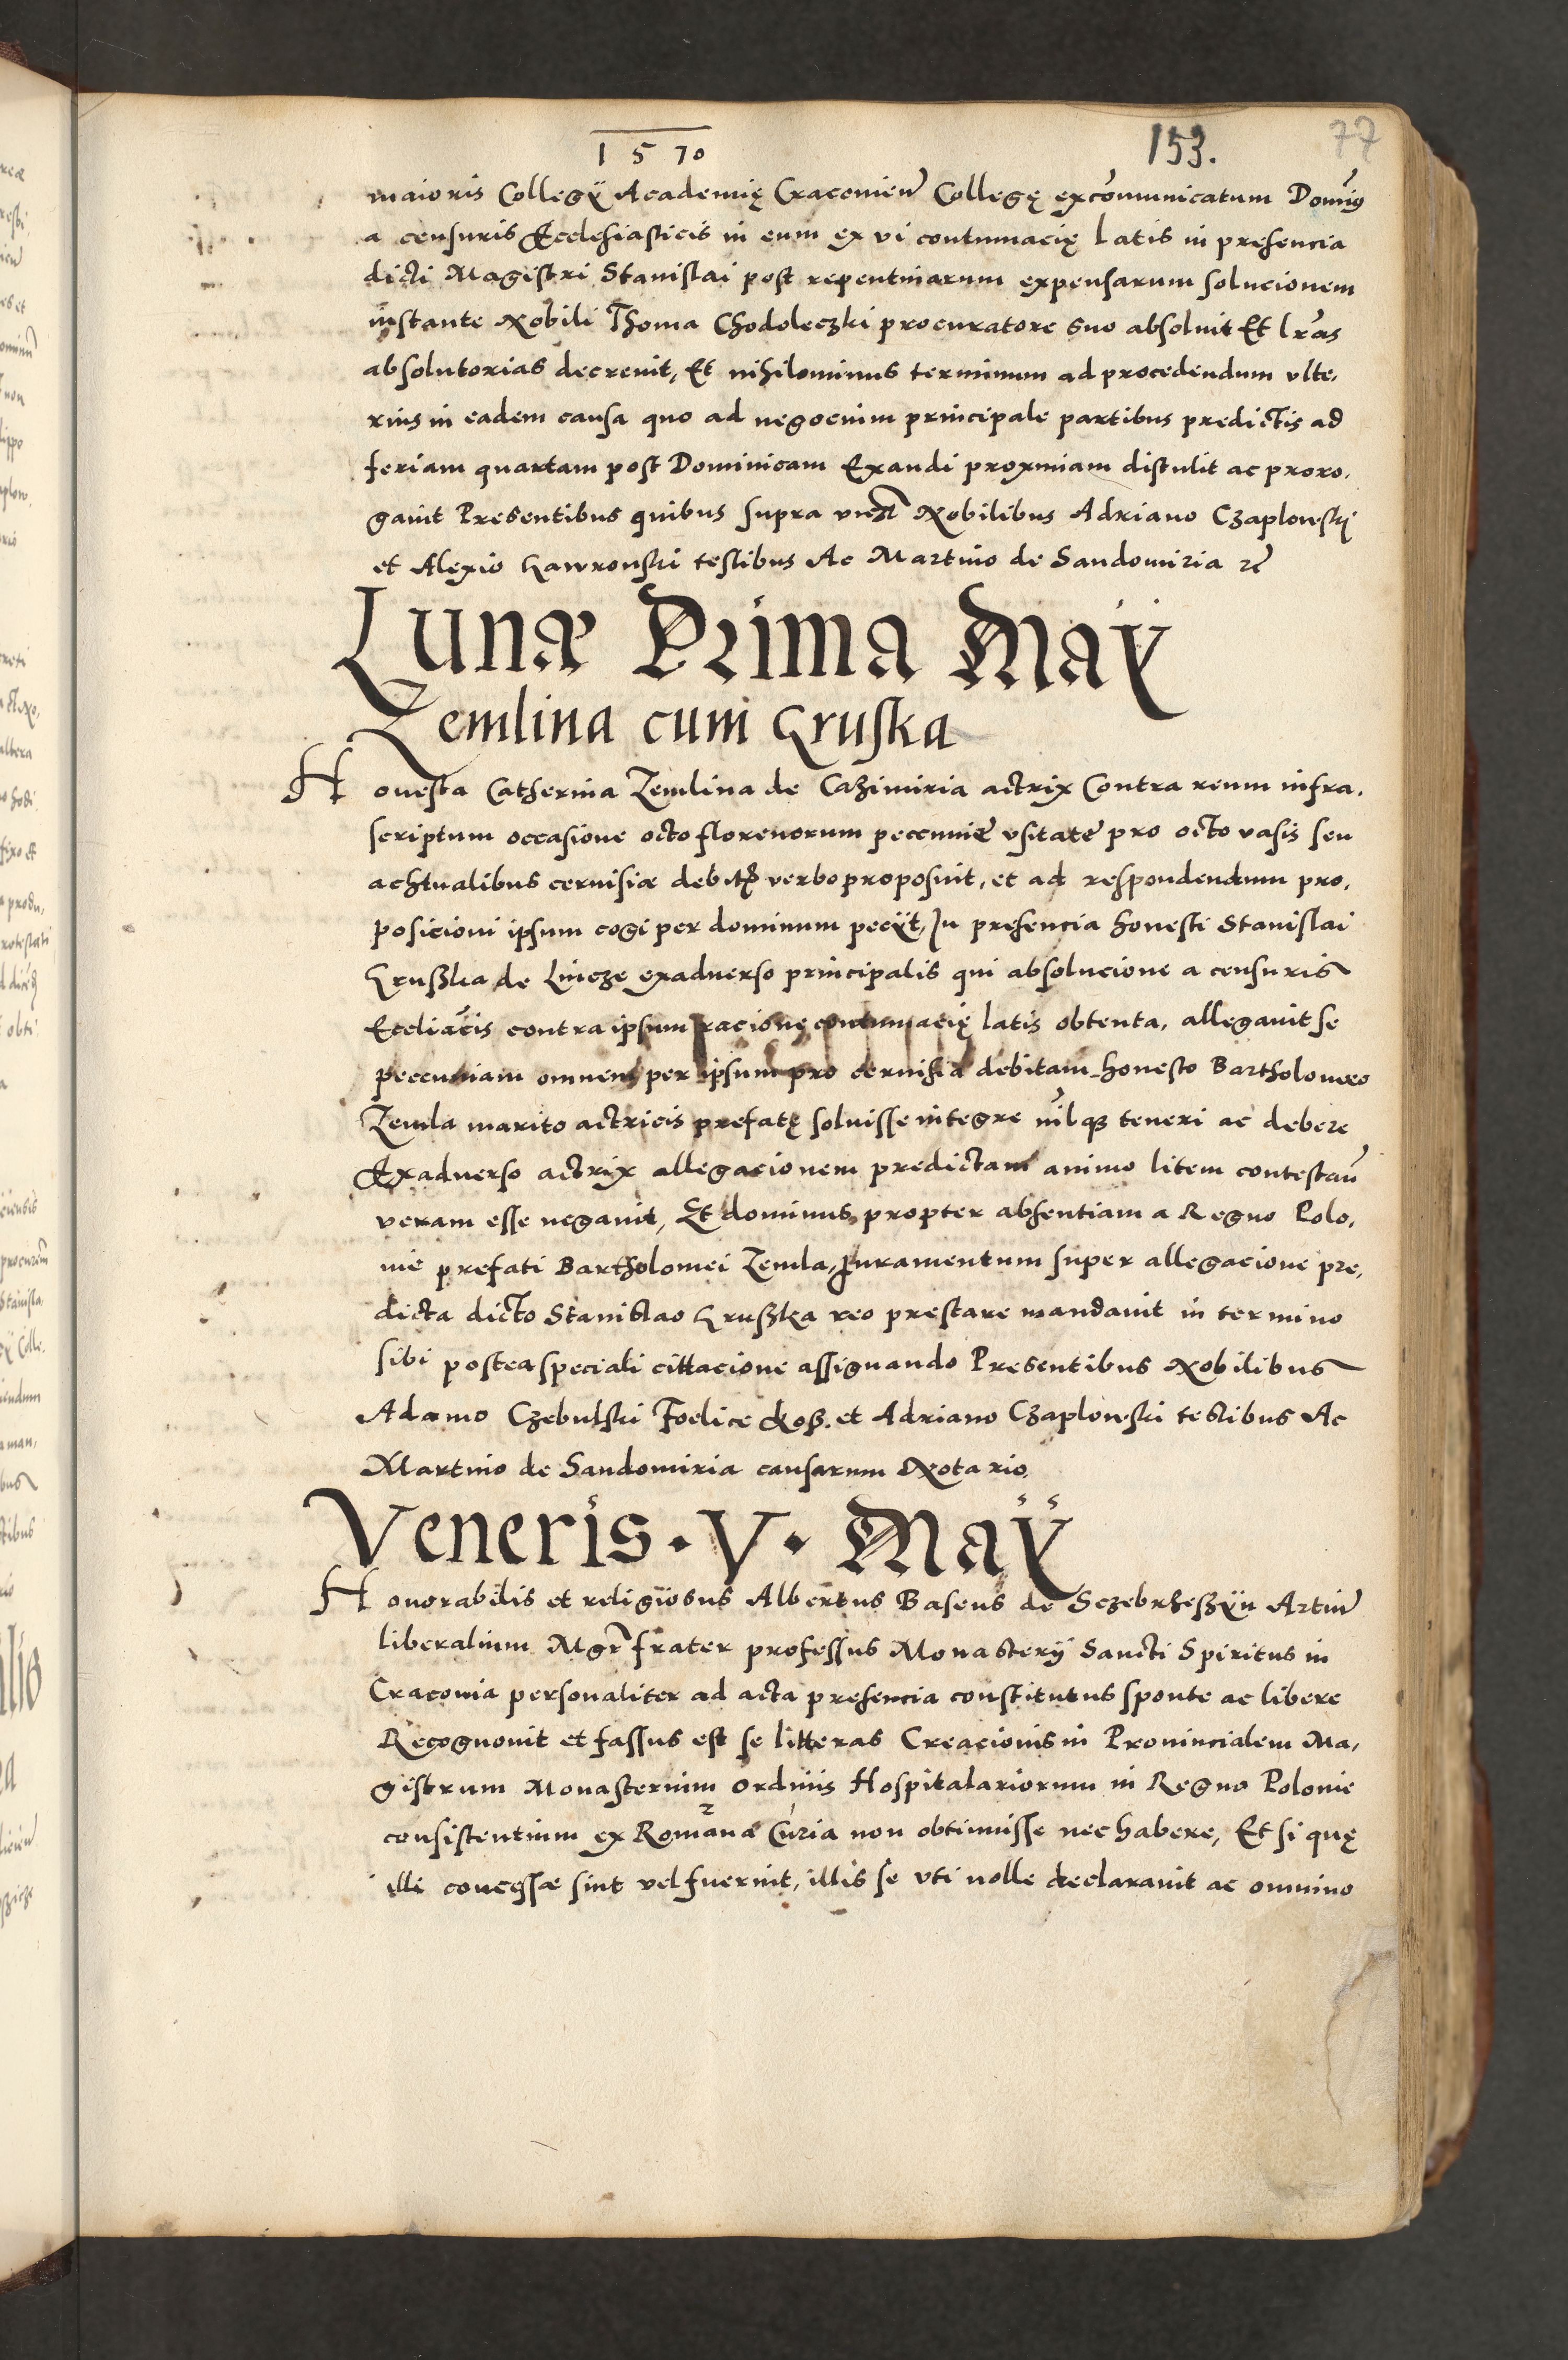 1570
153.
77
maioris Collegÿ Academię Cracovien Collegę excomunicatum Domnus
a censuris Ecclesiasticis in eum ex vi contumacię latis in presencia
dicti Magistri Stanislai post repentinarum expensarum solucionem
instante Nobili Thoma Chodoleczki procuratore suo absoluit Et lras
absolutorias decreuit, Et nihilominus terminum ad procedendum vlte,
rius in eadem causa quo ad negocium principale partibus predictis ad
feriam quartam post Dominicam Exaudi proximam distulit ac proro,
gauit Presentibus quibus supra Nobilibus Adriano Czaplowski
et Alexio Gawronski testibus Ac Martino de Sandomiria rc
Lunæ Prima Maÿ
Zemlina cum Gruska
Honesta Catherina Zemlina de Cazimiria actrix Contra reum infra,
scriptum occasione octo florenorum peccunie vsitate pro octo vasis seu
achtualibus ceruisiæ debitor verbo proposuit, et ad respondendum pro,
posicioni ipsum cogi per dominum peciit, In presencia honesti Stanislai
Grusska de Lnicze exaduerso principalis qui absolucione a censuris
Eccliacis contra ipsum racione contumacię latis obtenta, allegauit se
peccuniam omnem per ipsum pro ceruisia debitam honesto Bartholomeo
Zemla marito actricis prefatę soluisse integre nilque teneri ac debere
Exaduerso actrix allegacionem predictam animo litem contestan
veram esse negauit, Et dominus propter absentiam a Regno Polo,
nie prefati Bartholomei Zemla, Juramentum super allegacione pre,
dicta dicto Stanislao Grusska reo prestare mandauit in termino
sibi postea speciali cittacione assignando Presentibus Nobilibus
Adamo Czebulski Foelice et Adriano Czaplowski testibus Ac
Martino de Sandomiria causarum Notario
Veneris . V . Maÿ
Honorabilis et religiosus Albertus Baseus de Sczebrzheszÿn Artiu
liberalium Mgr frater professus Monasterÿ Sancti Spiritus in
Cracouia personaliter ad acta presencia constitutus sponte ac libere
Recognouit et fassus est se litteras Creacionis in Prouincialem Ma,
gistrum Monasterium Ordinis Hospitalariorum in Regno Polonie
consistentium ex Romana Curia non obtinuisse nec habere, Et si quę
illi concessæ sint vel fuerint, illis se vti nolle declarauit ac omnino